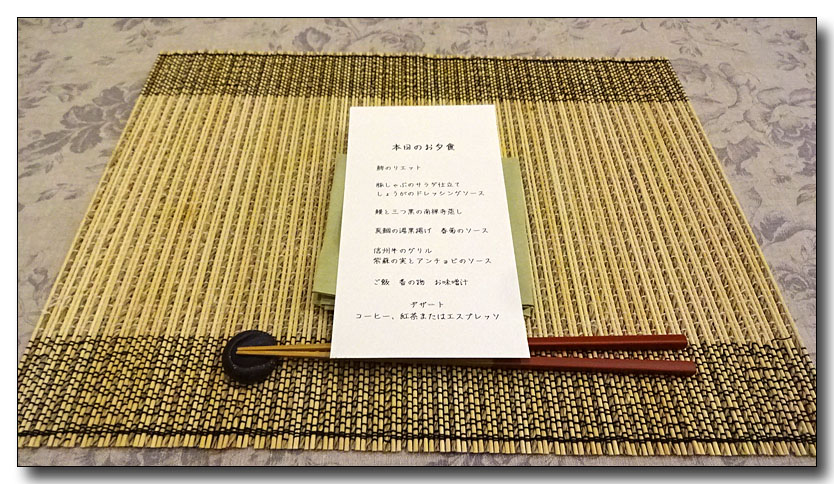 本日のお夕食
鯖のリエット
豚しゃぶのサラダ仕立て
しょうがのドレッシングソース
鰻と三つ葉の南禅寺蒸し
真鯛の湯葉揚げ 春菊のソース
信州牛のグリル
紫蘇の実とアンチョビのソース
ご飯 香の物 お味噌汁
デザート
コーヒー、紅茶またはエスプレッソ